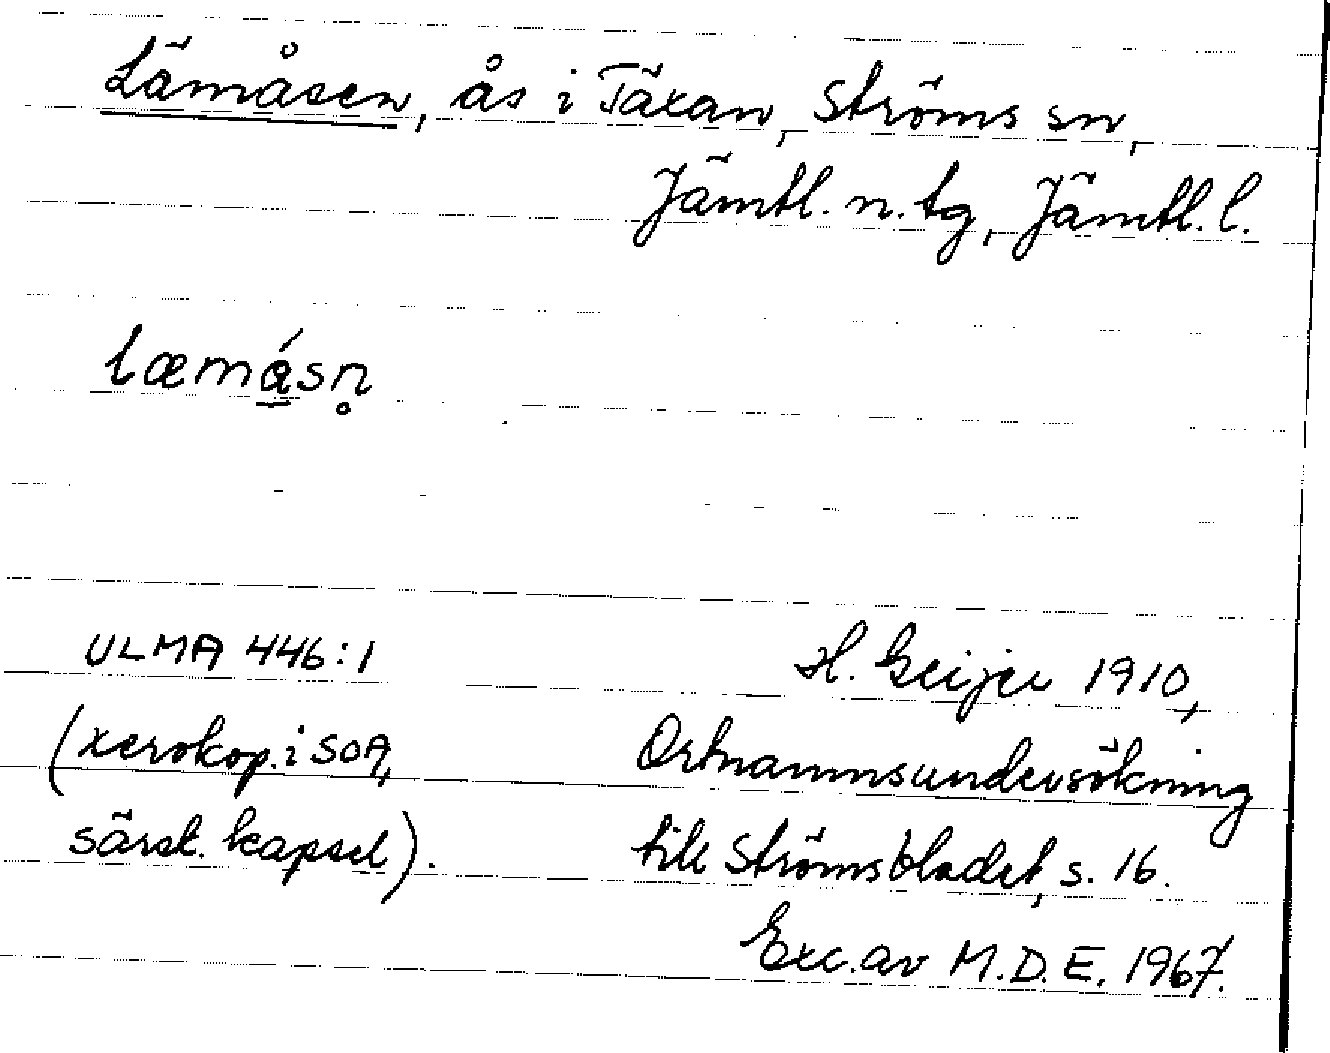 Lämåsen, ås i Täxan, Ströms sn,
Jämtl. n. tg, Jämtl. l.
læmá̱sn̥
ULMA 446:1
(xerokop. i SOA,
särsk. kapsel).
H. Geijer 1910,
Ortnamnsundersökning
till Strömsbladet, s. 16.
Exc. av M.D.E. 1967.